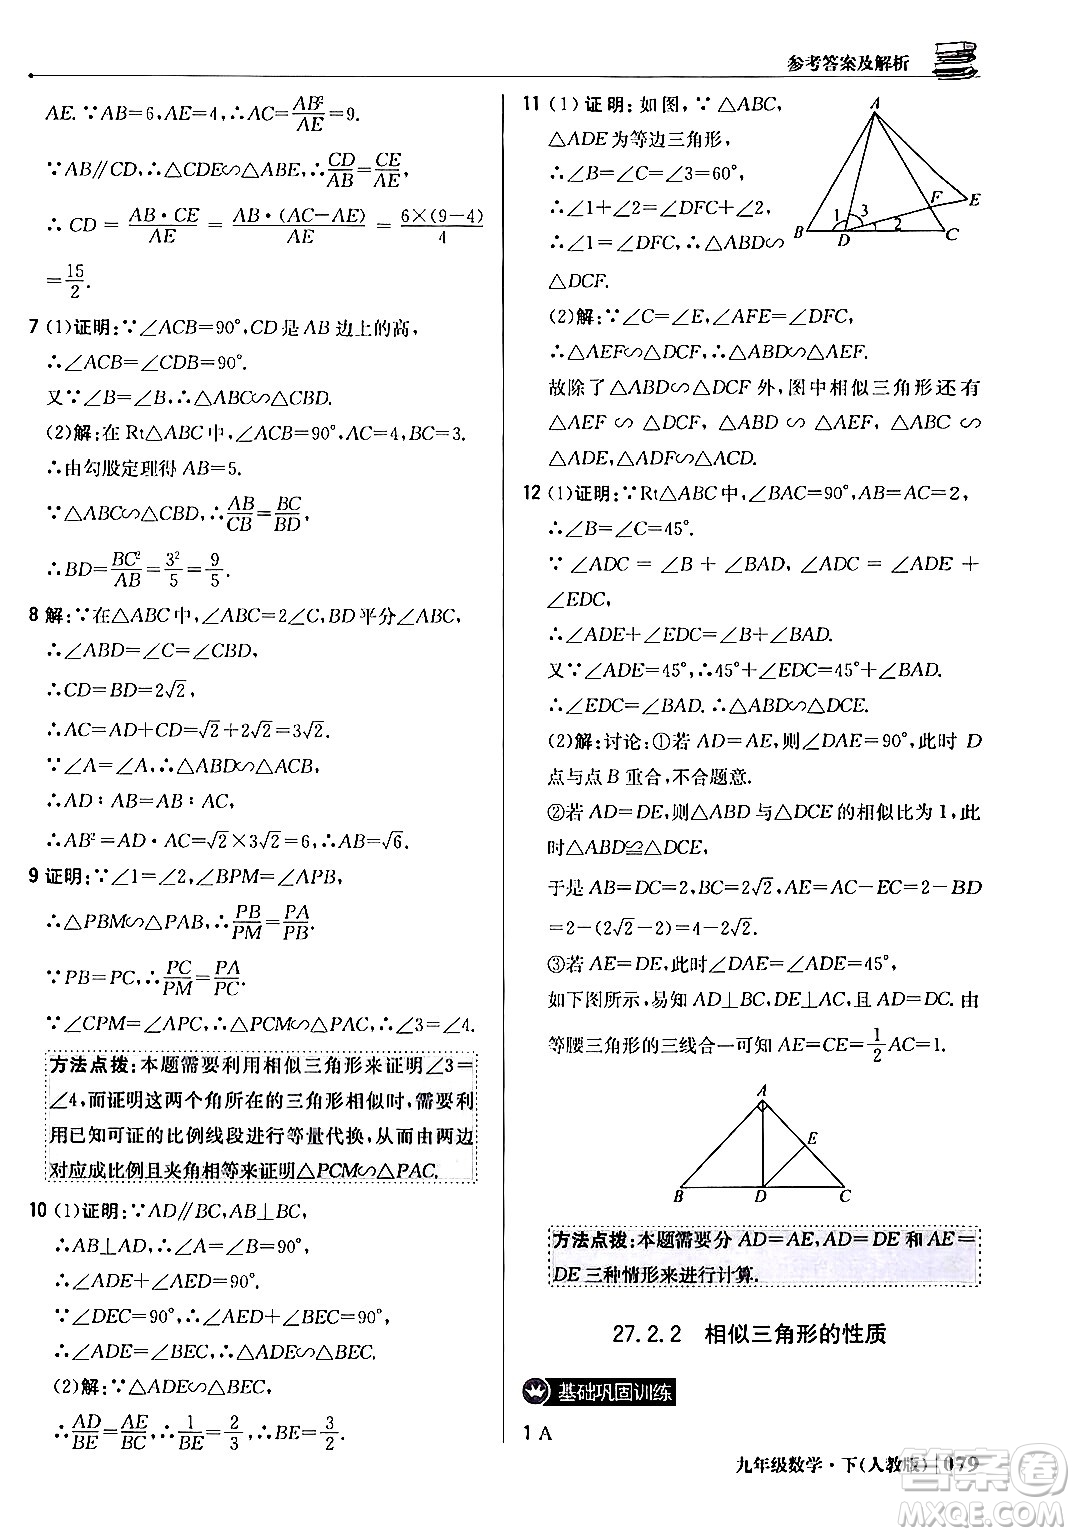 参考答案及解析
AE.∵AB=6,AE=4,∴AC=AB²/AE=9.
∵AB∥CD,∴△CDE∽△ABE,∴CD/AB=CE/AE,
∴ CD = AB·CE/AE = AB·(AC-AE)/AE = 6×(9-4)/4
=15/2.
7 (1)证明:∵∠ACB=90°,CD是AB边上的高,
∴∠ACB=∠CDB=90°.
又∵∠B=∠B,∴△ABC∽△CBD.
(2)解:在Rt△ABC中,∠ACB=90°,AC=4,BC=3.
∴由勾股定理得AB=5.
∵△ABC∽△CBD,∴AB/CB=BC/BD,
∴BD=BC²/AB=3²/5=9/5.
8 解:∵在△ABC中,∠ABC=2∠C,BD平分∠ABC,
∴∠ABD=∠C=∠CBD,
∴CD=BD=2√2,
∴AC=AD+CD=√2+2√2=3√2,
∵∠A=∠A,∴△ABD∽△ACB,
∴AD∶AB=AB∶AC,
∴AB²=AD·AC=√2×3√2=6,∴AB=√6.
9 证明:∵∠1=∠2,∠BPM=∠APB,
∴△PBM∽△PAB,∴PB/PM=PA/PB.
∵PB=PC,∴PC/PM=PA/PC.
∵∠CPM=∠APC,∴△PCM∽△PAC,∴∠3=∠4.
方法点拨:本题需要利用相似三角形来证明∠3=
∠4,而证明这两个角所在的三角形相似时,需要利
用已知可证的比例线段进行等量代换,从而由两边
对应成比例且夹角相等来证明△PCM∽△PAC.
10 (1)证明:∵AD∥BC,AB⊥BC,
∴AB⊥AD,∴∠A=∠B=90°,
∴∠ADE+∠AED=90°.
∵∠DEC=90°,∴∠AED+∠BEC=90°,
∴∠ADE=∠BEC,∴△ADE∽△BEC.
(2)解:∵△ADE∽△BEC,
∴AD/BE=AE/BC,∴1/BE=2/3,∴BE=3/2.
11 (1)证明:如图,∵△ABC,
△ADE为等边三角形,
∴∠B=∠C=∠3=60°,
∴∠1+∠2=∠DFC+∠2,
∴∠1=∠DFC,∴△ABD∽
△DCF.
A
B
D
C
F
E
1
3
2
(2)解:∵∠C=∠E,∠AFE=∠DFC,
∴△AEF∽△DCF,∴△ABD∽△AEF.
故除了△ABD∽△DCF外,图中相似三角形还有
△AEF∽△DCF,△ABD∽△AEF,△ABC∽
△ADE,△ADF∽△ACD.
12 (1)证明:∵Rt△ABC中,∠BAC=90°,AB=AC=2,
∴∠B=∠C=45°.
∵ ∠ADC = ∠B + ∠BAD, ∠ADC = ∠ADE +
∠EDC,
∴∠ADE+∠EDC=∠B+∠BAD.
又∵∠ADE=45°,∴45°+∠EDC=45°+∠BAD,
∴∠EDC=∠BAD.∴△ABD∽△DCE.
(2)解:讨论:①若AD=AE,则∠DAE=90°,此时D
点与点B重合,不合题意.
②若AD=DE,则△ABD与△DCE的相似比为1,此
时△ABD≌△DCE,
于是AB=DC=2,BC=2√2,AE=AC-EC=2-BD
=2-(2√2-2)=4-2√2.
③若AE=DE,此时∠DAE=∠ADE=45°,
如下图所示,易知AD⊥BC,DE⊥AC,且AD=DC.由
等腰三角形的三线合一可知AE=CE=1/2AC=1.
A
E
B
D
C
方法点拨:本题需要分AD=AE,AD=DE和AE=
DE三种情形来进行计算.
27.2.2 相似三角形的性质
基础巩固训练
1 A
九年级数学·下(人教版) 079
答案圈
MXQE.COM